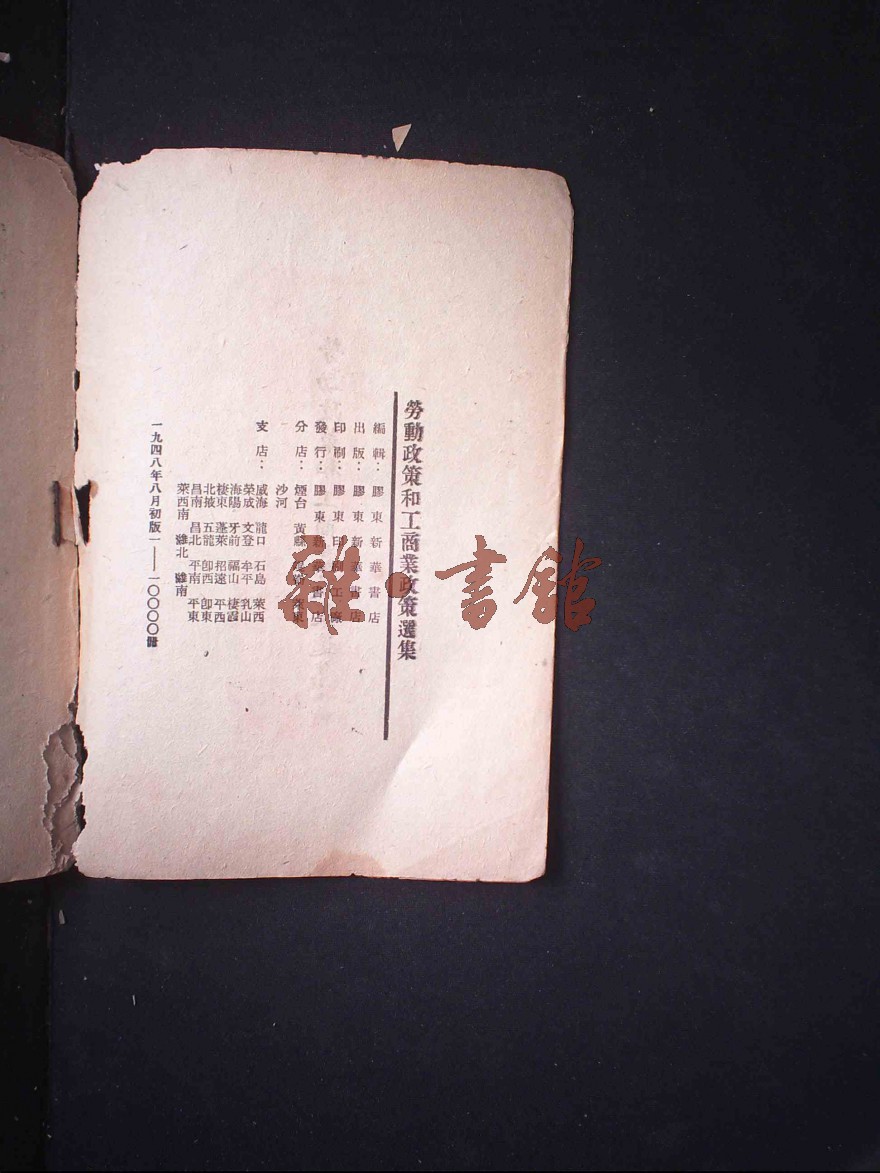 勞動政策和工商業政策選集
編輯：膠東新華書店
出版：膠東新華書店
印刷：膠東印刷工廠
發行：膠東新華書店
分店：煙台 黃縣 萊東
沙河
支店：威海 龍口 石島 萊西
榮成 文登 牟平 乳山
海陽 牙前 福山 棲霞
棲東 蓬萊 招遠 平西
北掖 五龍 卽西 卽東
昌南 昌北 平南 平東
萊西南 濰北 濰南
一九四八年八月初版一——一〇〇〇〇冊
雜·書館